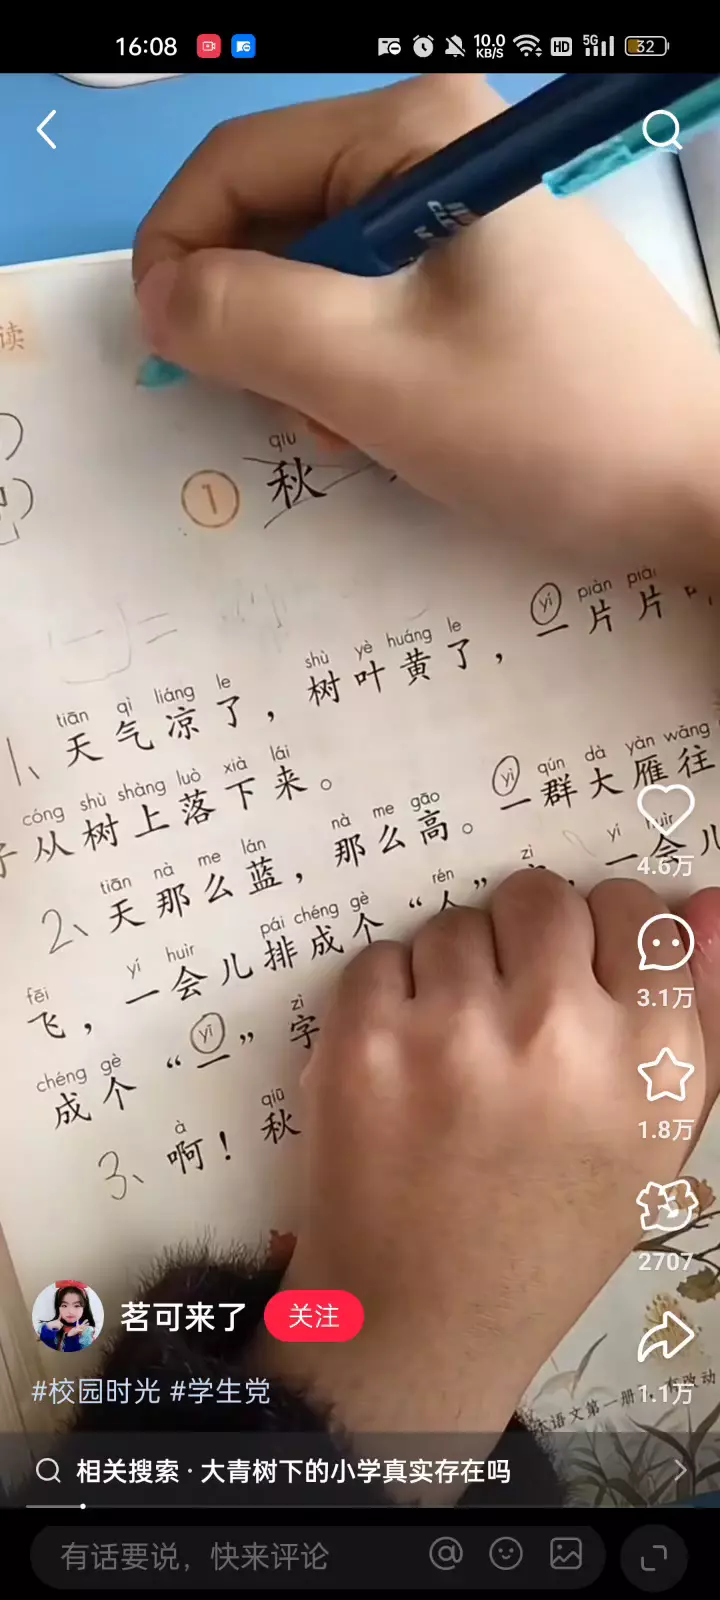 16:08
10.0 KB/S
HD
5G
32
读
CLE
qiū
1 秋
yí piàn piàn
shù yè huáng le
tiān qì liáng le
1、天气凉了，树叶黄了，一片片
cóng shù shàng luò xià lái
子从树上落下来。
yì qún dà yàn wǎng
tiān nà me lán nà me gāo
2、天那么蓝，那么高。一群大雁往
fēi yí huìr pái chéng gè rén zì yí huìr
飞，一会儿排成个“人”字，一会儿
chéng gè yī zì
成个“一”字
à qiū
3、啊！秋
语文第一册，有改动
4.6万
3.1万
1.8万
2707
1.1万
茗可来了 关注
#校园时光 #学生党
相关搜索 · 大青树下的小学真实存在吗
有话要说，快来评论